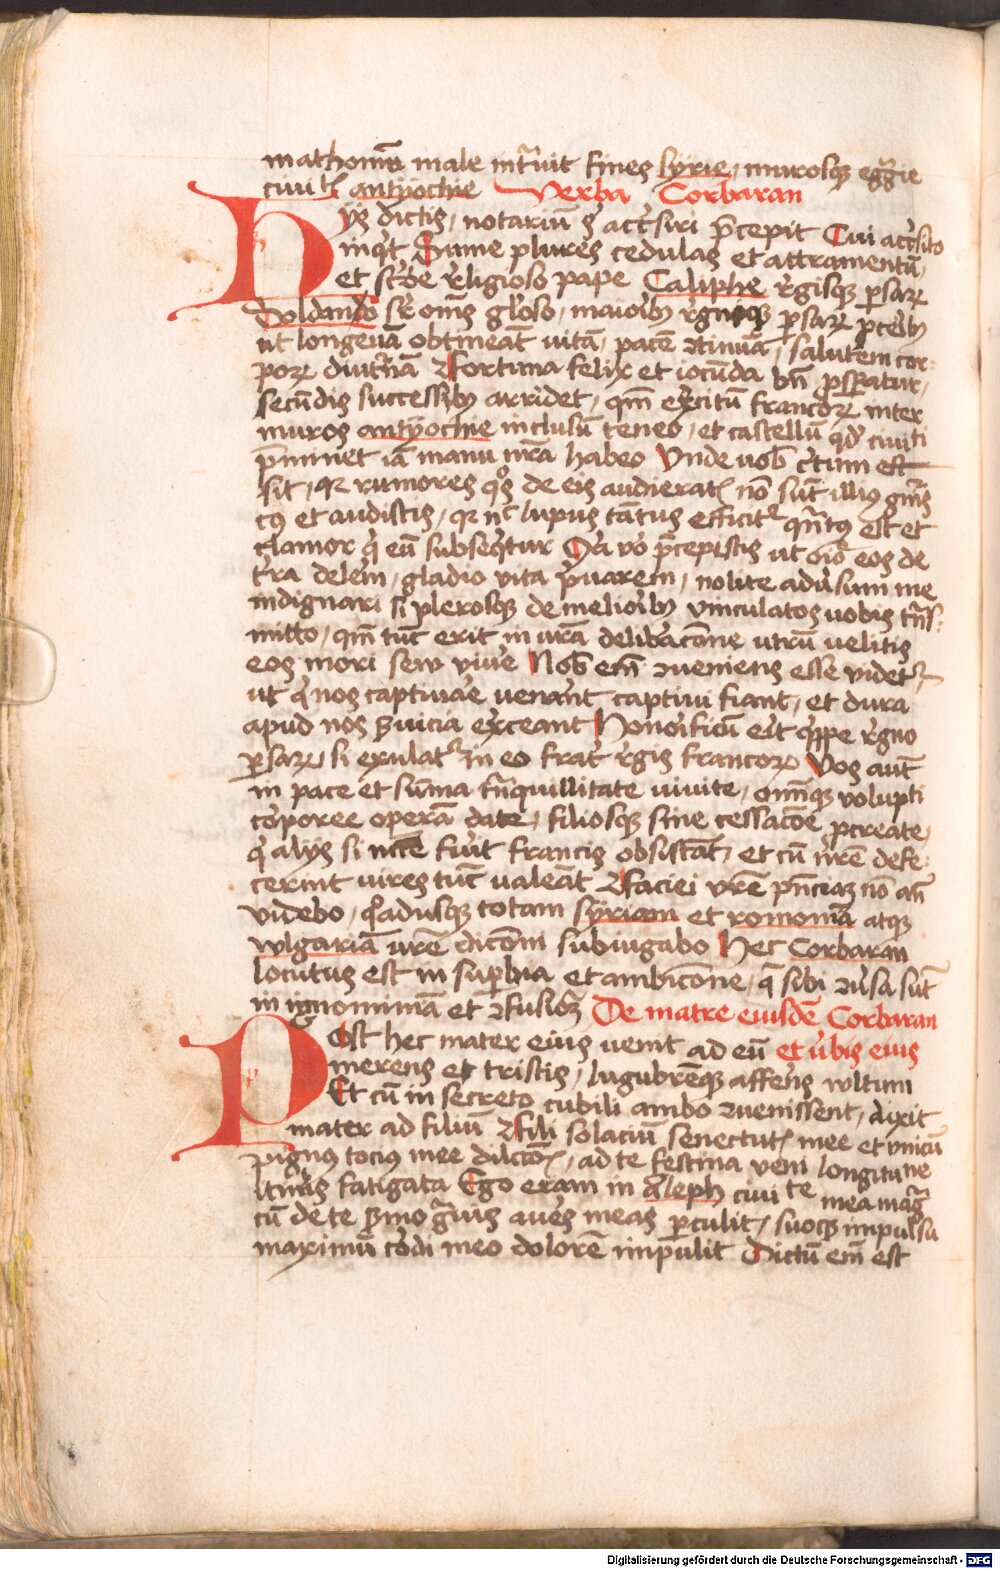 mathomū male int̄uit fines syrie, murosqꝫ eḡgie
ciuitꝭ antyochie Verba Corbaran
Hys dictis, notariū s̄ acc̄siri p̄cepit Cui acc̄sito
inq̄t Sume plures cedulas et attramentū,
et sc̄be r̄ligioso pape Caliphe r̄gisqꝫ ꝑsaꝝ
Soldano sr̄ om̄s gl̄oso, maioībꝫ r̄gnisqꝫ ꝑsaꝝ ꝓceībꝫ
ut longeuā obtineāt uitā, pacē ꝯtinuā, salutem cor-
poꝝ diut̄nā ꝯfortuna felix et iocūda bn̄ ꝓsꝑatur,
secūdis successibꝫ arridet, qm̄ ex̄citū francoꝝ inter
muros antyochie inclusū teneo, et castellū qd̄ ciuiti
p̄minet iā manu nr̄a habeo Vnde uob̄ c̄tum est
sit, qꝛ rumores qͦs de eis audieratꝭ nō sūt illiꝰ gn̄is
cꝰ et audistis, qꝛ nͨ lupus tātus efficit᷑ qn̄tꝰ est et
clamor q̄ eū subseq̄tur Qꝛ vͦ p̄cepistis ut oīo eos de
t̄ra delem̄, gladio vita p̄uarem, nolite adu̓sum me
indignari si plerosqꝫ de melioībꝫ vinculatos uobis tn̄s-
mitto, qm̄ tūc erit in vr̄a delib̄acōne vtrū velitis
eos mori sew viue̓ Nob̄ em̄ ꝯueniens esse videt᷑
ut q̄ nos captiuae̓ vener̄nt captiui fiant, et dura
apud nos ẜuicia ex̄ceant Honoīficū est q̄ppe r̄gno
ꝑsaꝝ, si exulat᷑ in eo frat̓ r̄gis francoꝝ Vos aūt
in pace et sūma tn̄quillitate uiuite, om̄nqꝫ volupti
corporee operā date, filiosqꝫ sine cessacōe ꝓcreate,
q̄ alys si nc̄ce fuit̓ francis obsistāt, et cū nr̄e defe-
cerint uires tūc valeāt ꝯfaciei vr̄e pn̄ciaꝫ nō an̄
videbo, qͦadusqꝫ totam syriam et romoniā atqꝫ
wlgariā ur̄e dicōni subiugabo Hec Corbaran
locutus est in suꝑbia et ambicōne, q̄ sibi ꝯu̓sa sūt
in ignominiā et ꝯfusioꝫ De matre eiusdē Corbaran
Post hec mater eius venit ad eū et u̓bis eius
merens et tristis, lugubremqꝫ affer̄s wltum
Et cū in secreto cubili ambo ꝯuenissent, dixit
mater ad filiū ꝯfili solaciū senectutꝭ mee et vnicū
pignꝰ tociꝰ mee dilc̄oīs, ad te festina veni longitune
itin̄is fatigata Ego eram in Aleph ciuite mea mag̓
cū de te ẜmo gūis aues̄ meas ꝑculit, suoqꝫ impulsu
maximū cordi meo dolorē impulit Dictū em̄ est
Digitalisierung gefördert durch die Deutsche Forschungsgemeinschaft - DFG